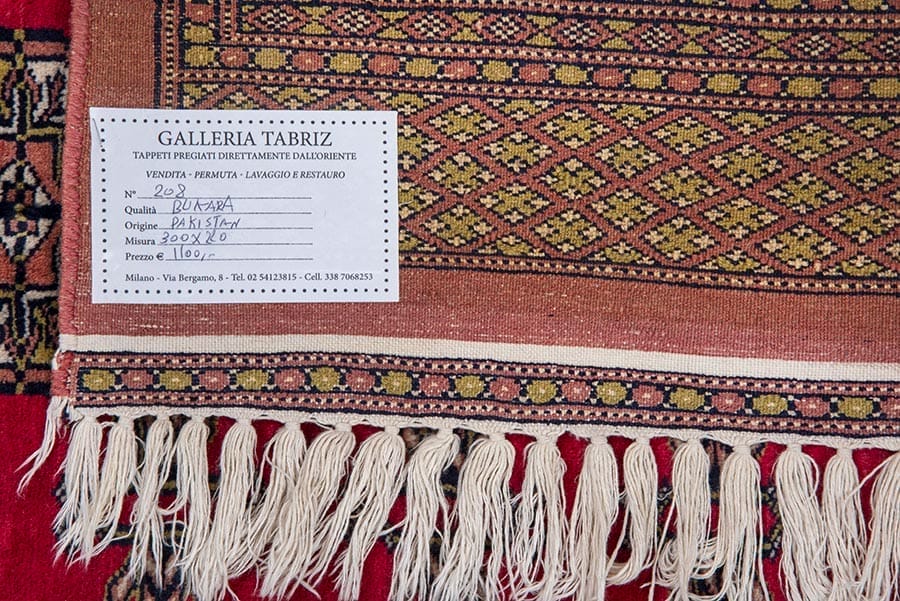 GALLERIA TABRIZ
TAPPETI PREGIATI DIRETTAMENTE DALL'ORIENTE
VENDITA - PERMUTA - LAVAGGIO E RESTAURO
N° 208
Qualità BUKARA
Origine PAKISTAN
Misura
Prezzo € 1100,-
Milano - Via Bergamo, 8 - Tel. 02 54123815 - Cell. 338 7068253